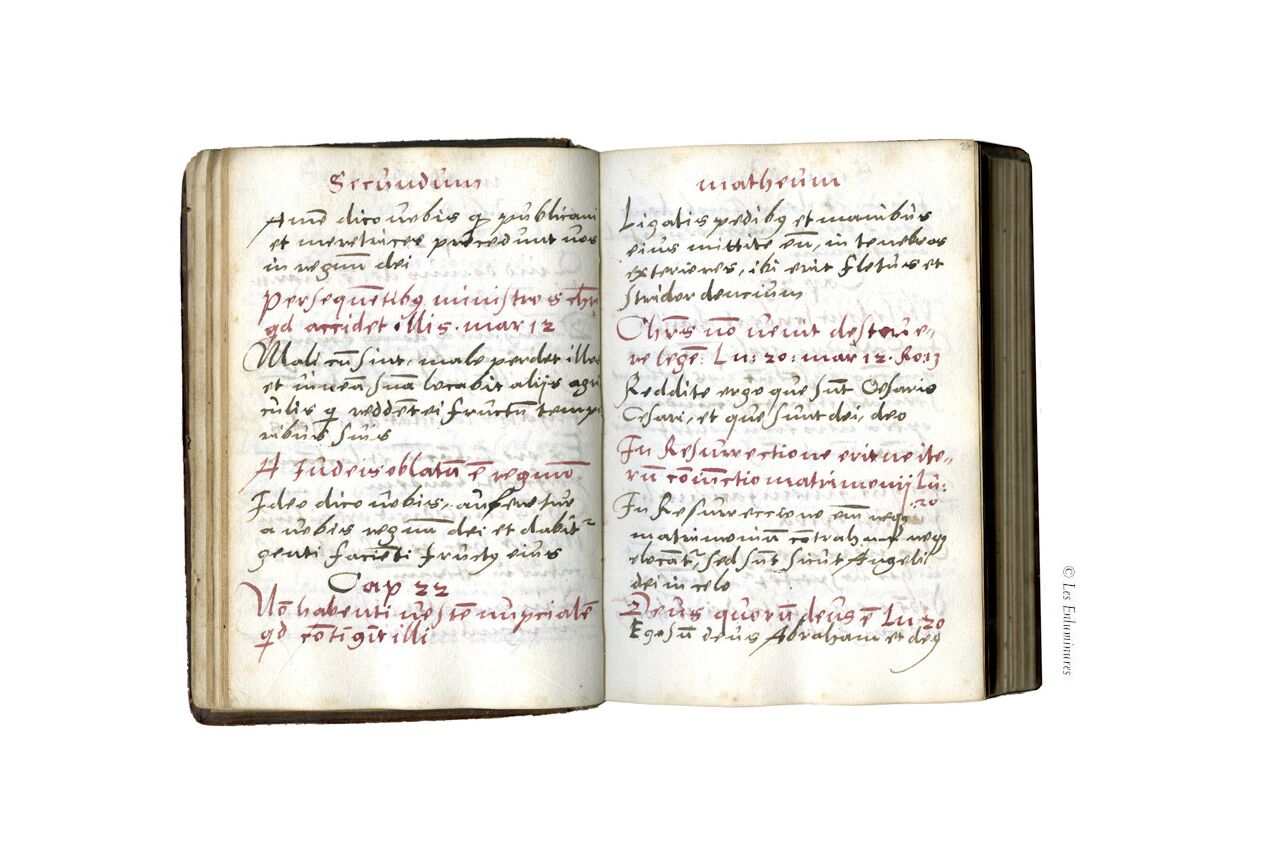 Secundum
Amē dico vobis q̄ publicani
et meretrices precedunt vos
in regnū dei
Persequētibȝ ministros chri
qd accidet illis. mar 12
Mali cū sint, male perdet illos
et vineā suā locabit alijs agri
culis q̄ reddēt ei fructū tempo
ribus suis
A Iudeis oblatū ē regnum
Ideo dico vobis, auferetur
a vobis regnū dei et dabitr
genti faciēti fructȝ eius
Cap 22
Nō habenti vestē nupcialē
qd cōtigit illi
matheum
Ligatis pedibȝ et manibus
eius mittite eū, in tenebras
exteriores, ibi erit fletus et
stridor dencium
Chrs nō venit destrue-
re legē: Lu: 20: mar 12. Ro: 13
Reddite ergo que sūt Cesaris
Cesari, et que sunt dei, deo
In Resurrectione erit ne ite-
rū cōiūctio matrimonij Lu:
20
In Resurreccione eī neqȝ
matrimoniū cōtrahunt neqȝ
elocātr, sed sūt sicut Angeli
dei in celo
Deus quorū deus ē Lu 20
Ego sū deus Abraham et deȝ
© Les Enluminures